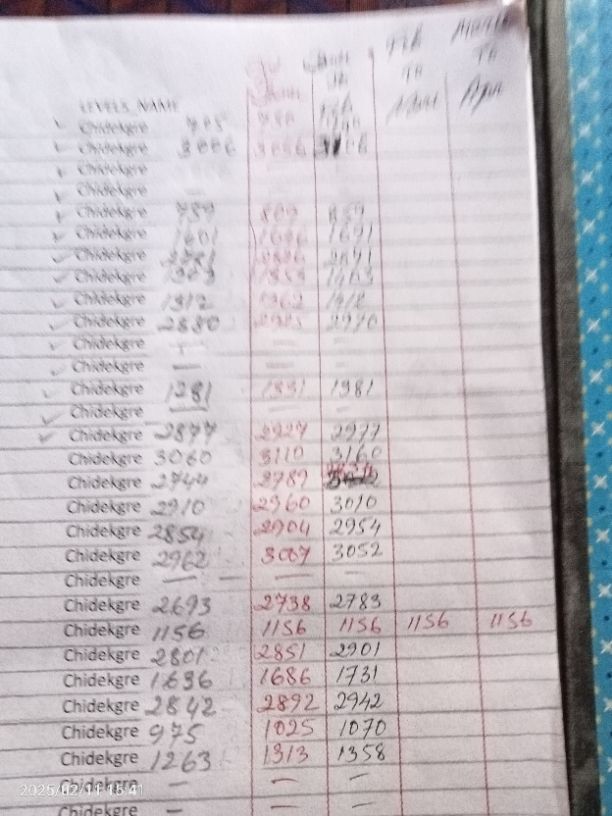 Feb March
To To
LEVELS_NAME April
Chidekgre 705
Chidekgre 3006 3056
Chidekgre
Chidekgre —
Chidekgre 759 809 859
Chidekgre 1601 1646 1691
Chidekgre 2841
Chidekgre 1463
Chidekgre 1312 1362
Chidekgre 2880 2970
Chidekgre — — —
Chidekgre — — —
Chidekgre 1281 1331 1381
Chidekgre — —
Chidekgre 2877 2927 2977
Chidekgre 3060 3110 3160
Chidekgre 2744 2789
Chidekgre 2910 2960 3010
Chidekgre 2854 2904 2954
Chidekgre 2962 3007 3052
Chidekgre — — —
Chidekgre 2693 2738 2783
Chidekgre 1156 1156 1156 1156 1156
Chidekgre 2801 2851 2901
Chidekgre 1636 1686 1731
Chidekgre 2842 2892 2942
Chidekgre 975 1025 1070
Chidekgre 1263 1313 1358
Chidekgre — — —
2025/02/11 15:41
Chidekgre — — —